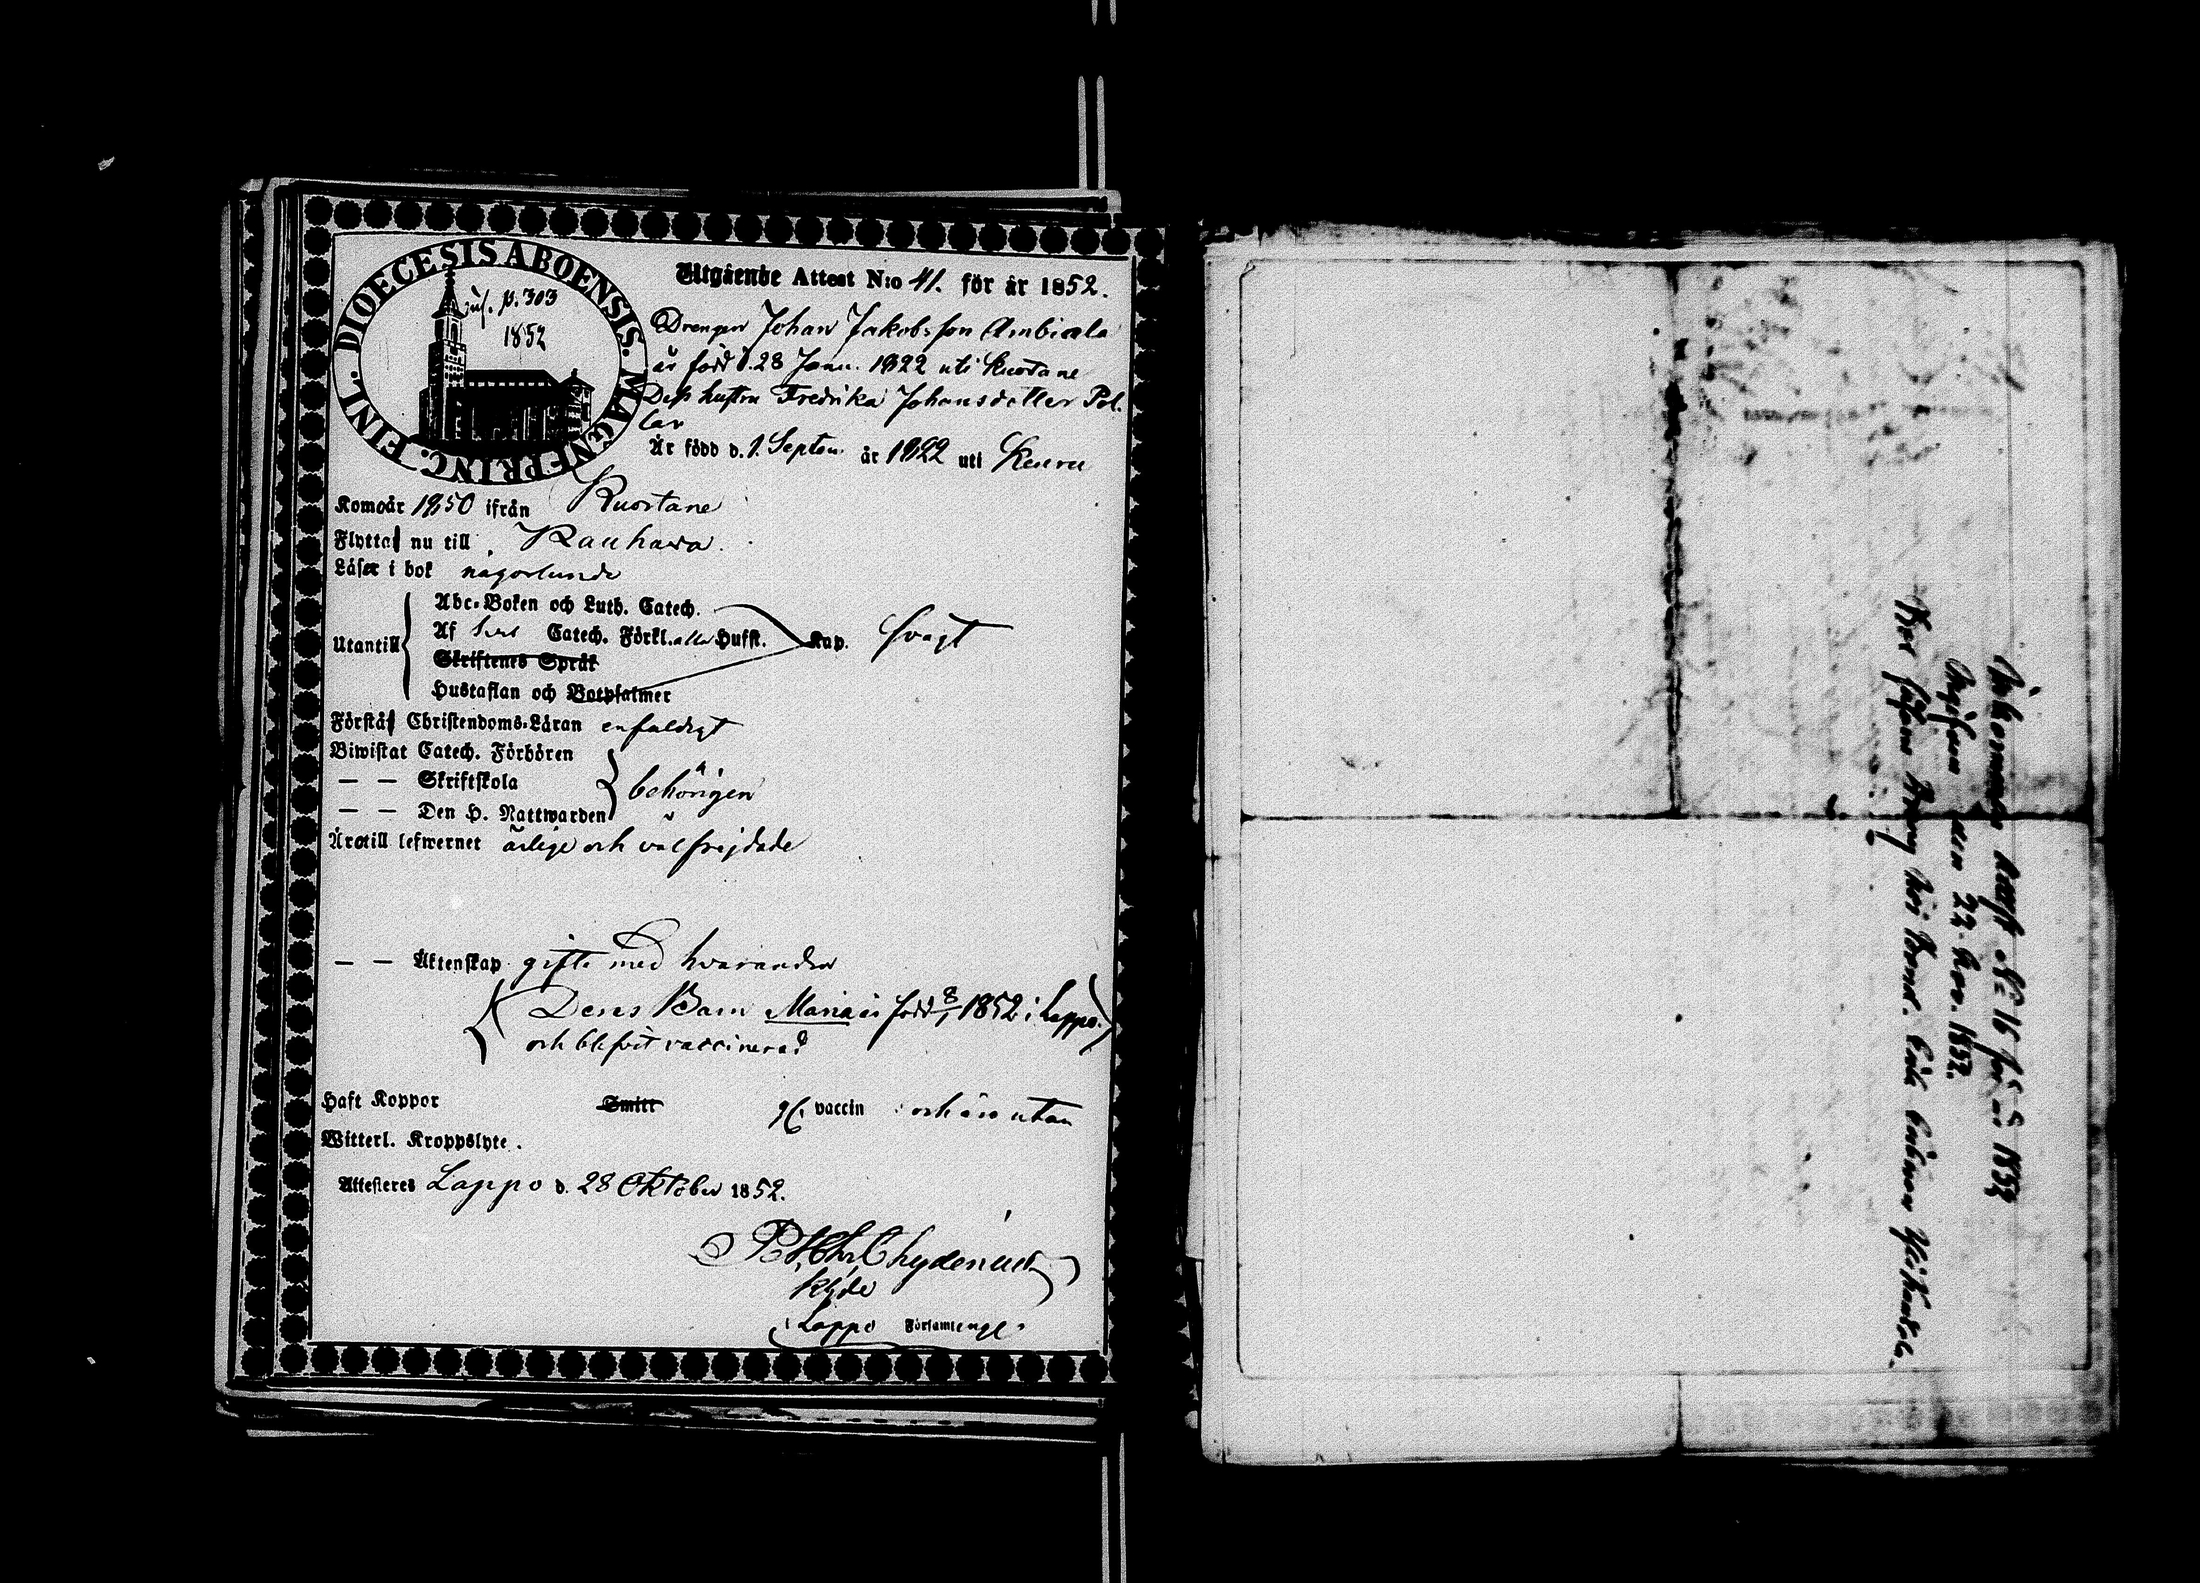 DIOECESIS ABOENSIS. MAGN. PRINC. FINL.
inf. p. 303
1852
Utgående Attest N:o 41. för år 1852.
Drengen Johan Jakobsson Ambiala
är född d. 28 Janu. 1822 uti Kuortane
Dess hustru Fredrika Johansdotter Pol-
lar
Är född d. 1 Septem. år 1822 uti Keuru
Komo år 1850 ifrån Kuortane
Flytta nu till Kauhava.
Läser i bok någorlunda
Utantill
Abc-Boken och Luth. Catech.
Af Catech. Förkl. alla Hufst. Kap. svagt
Skriftenes Språk
Hustaflan och Botpsalmer
Förstå Christendoms-Läran enfaldigt
Biwistat Catech. Förhören
— — Skriftskola
behörigen
— — Den H. Nattwarden
Äro till lefwernet ärlige och välfrejdade
— — Äktenskap gifte med hvarandra
Deras Barn Maria är född 8/1 1852 i Lappo.
och blifvit vaccinerad
Haft Koppor Smitt gm vaccin och äro utan
Witterl. Kroppslyte.
Attesteres Lappo d. 28 Oktober 1852.
Chydenius
Lappo Församlings
Inkommande Attest N:o 16 för år 1852
den 22 Nov. 1852.
hos Bond.